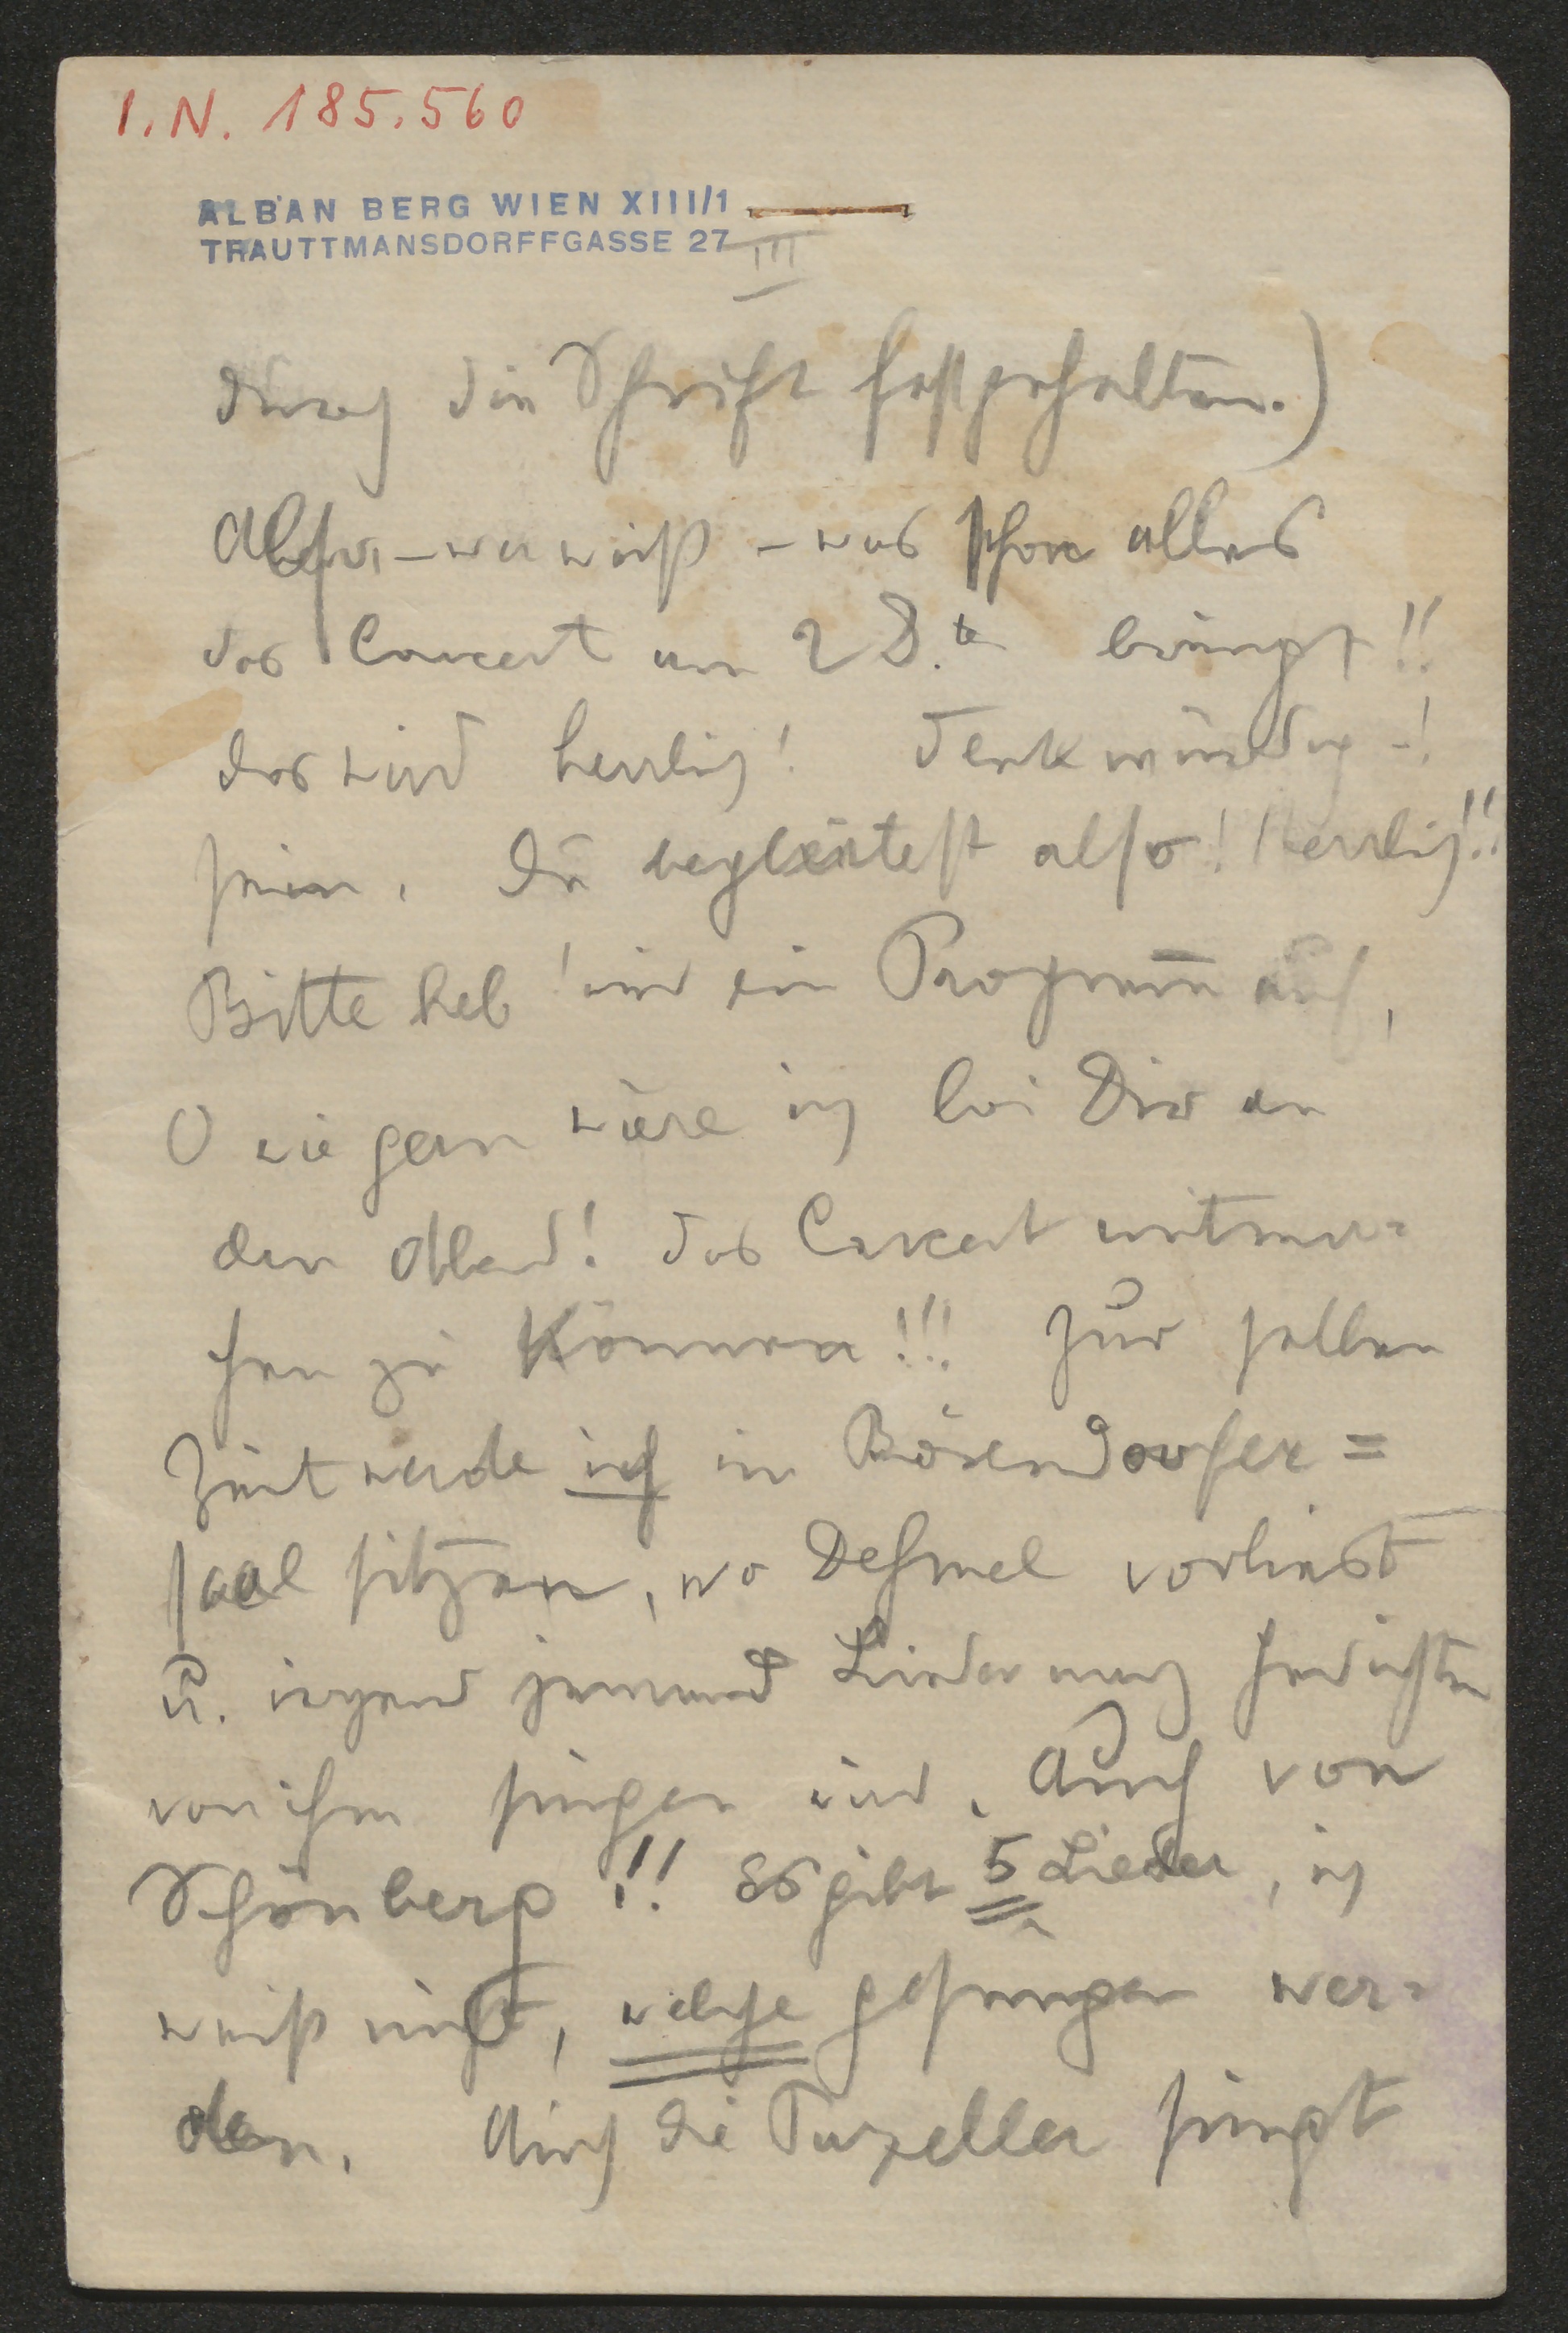 I.N. 185.560
ALBAN BERG WIEN XIII/1
TRAUTTMANSDORFFGASSE 27
III
durch die Schrift festgehalten.)
Also, – wer weiß – was schon alles
das Concert am 28.te bringt!!
das wird herrlich! Denkwürdig –!
sein. Du begleitest also! Herrlich!!
Bitte heb' mir ein Programm̄ auf,
O wie gern wäre ich bei Dir an
dem Abend! das Concert mitma=
chen zu können!!! Zur selben
Zeit werde ich im Bösendorfer=
saal sitzen, wo Dehmel vorliest
u. irgend jemand Lieder nach Gedichten
von ihm singen wird. Auch von
Schönberg!!! Es gibt 5 Lieder, ich
weiß nicht, welche gesungen wer=
den. Auch die Purzeller singt